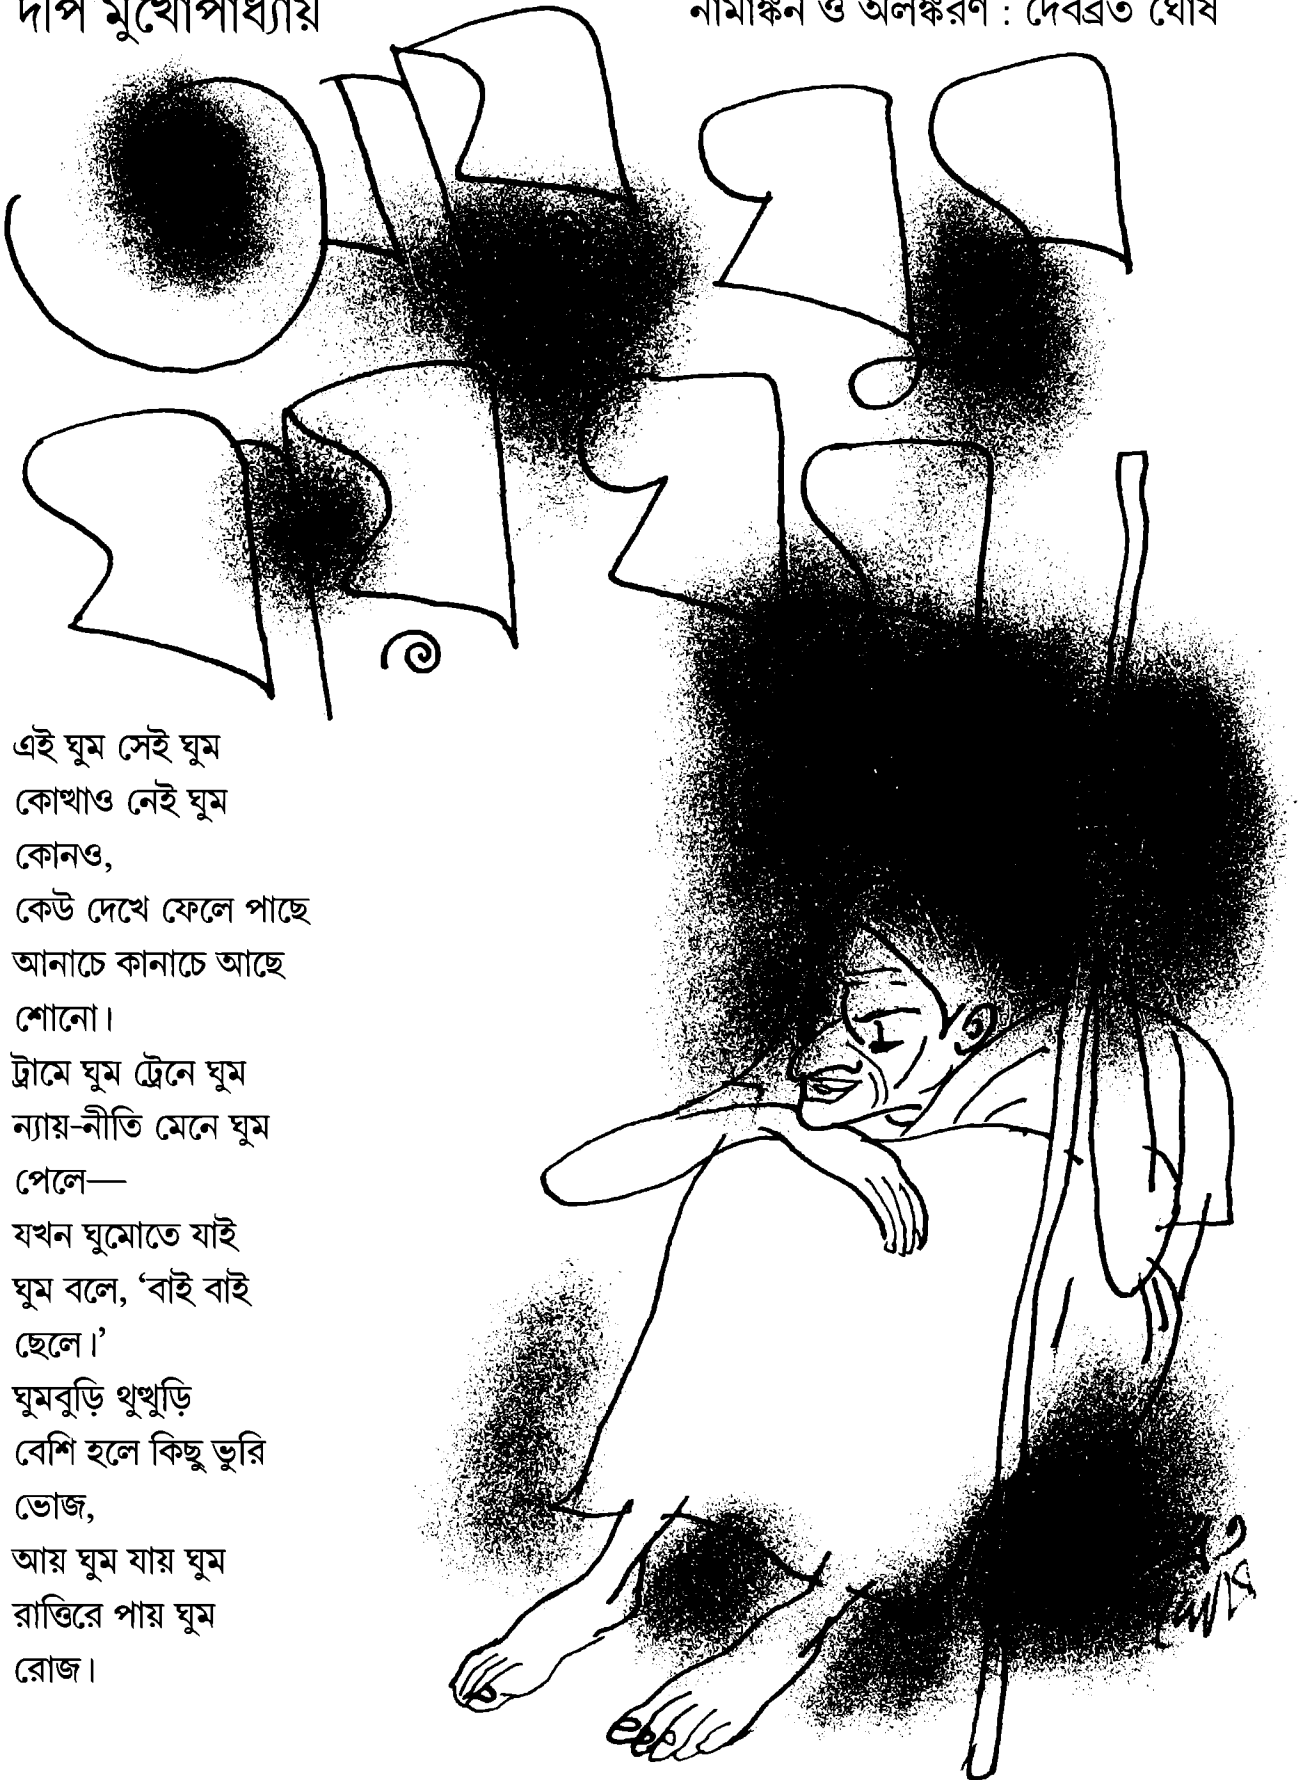 দীপ মুখোপাধ্যায়
নামাঙ্কন ও অলঙ্করণ : দেবব্রত ঘোষ
আয় ঘুম
যায় ঘুম
এই ঘুম সেই ঘুম
কোত্থাও নেই ঘুম
কোনও,
কেউ দেখে ফেলে পাছে
আনাচে কানাচে আছে
শোনো।
ট্রামে ঘুম ট্রেনে ঘুম
ন্যায়-নীতি মেনে ঘুম
পেলে—
যখন ঘুমোতে যাই
ঘুম বলে, ‘বাই বাই
ছেলে।’
ঘুমবুড়ি থুত্থুড়ি
বেশি হলে কিছু ভুরি
ভোজ,
আয় ঘুম যায় ঘুম
রাত্তিরে পায় ঘুম
রোজ।